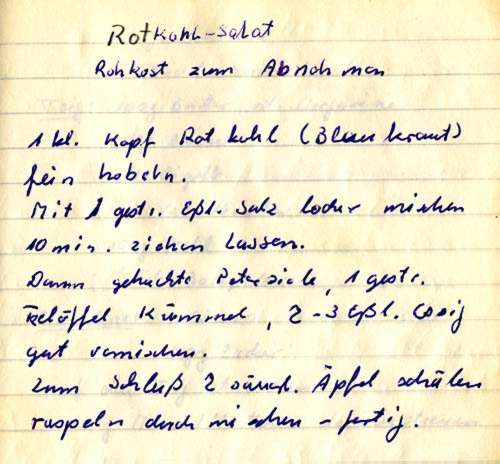 Rotkohl-Salat
Rohkost zum Abnehmen
1 kl. Kopf Rotkohl (Blaukraut)
fein hobeln.
Mit 1 gestr. Eßl. Salz locker mischen
10 min. ziehen lassen.
Dann gehackte Petersilie, 1 gestr.
Eßlöffel Kümmel, 2-3 Eßl. Essig
gut vermischen.
Zum Schluß 2 säuerl. Äpfel schälen
raspeln durchmischen - fertig.